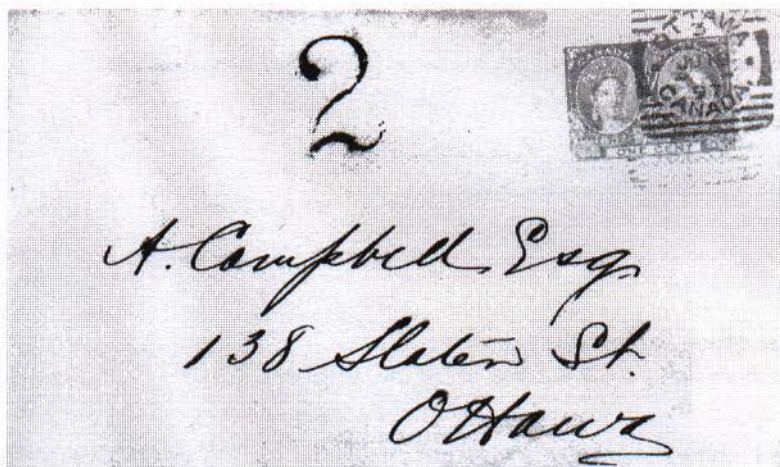 2
OTTAWA
3
CANADA
ONE CENT
A. Campbell Esq
138 Slater St.
Ottawa